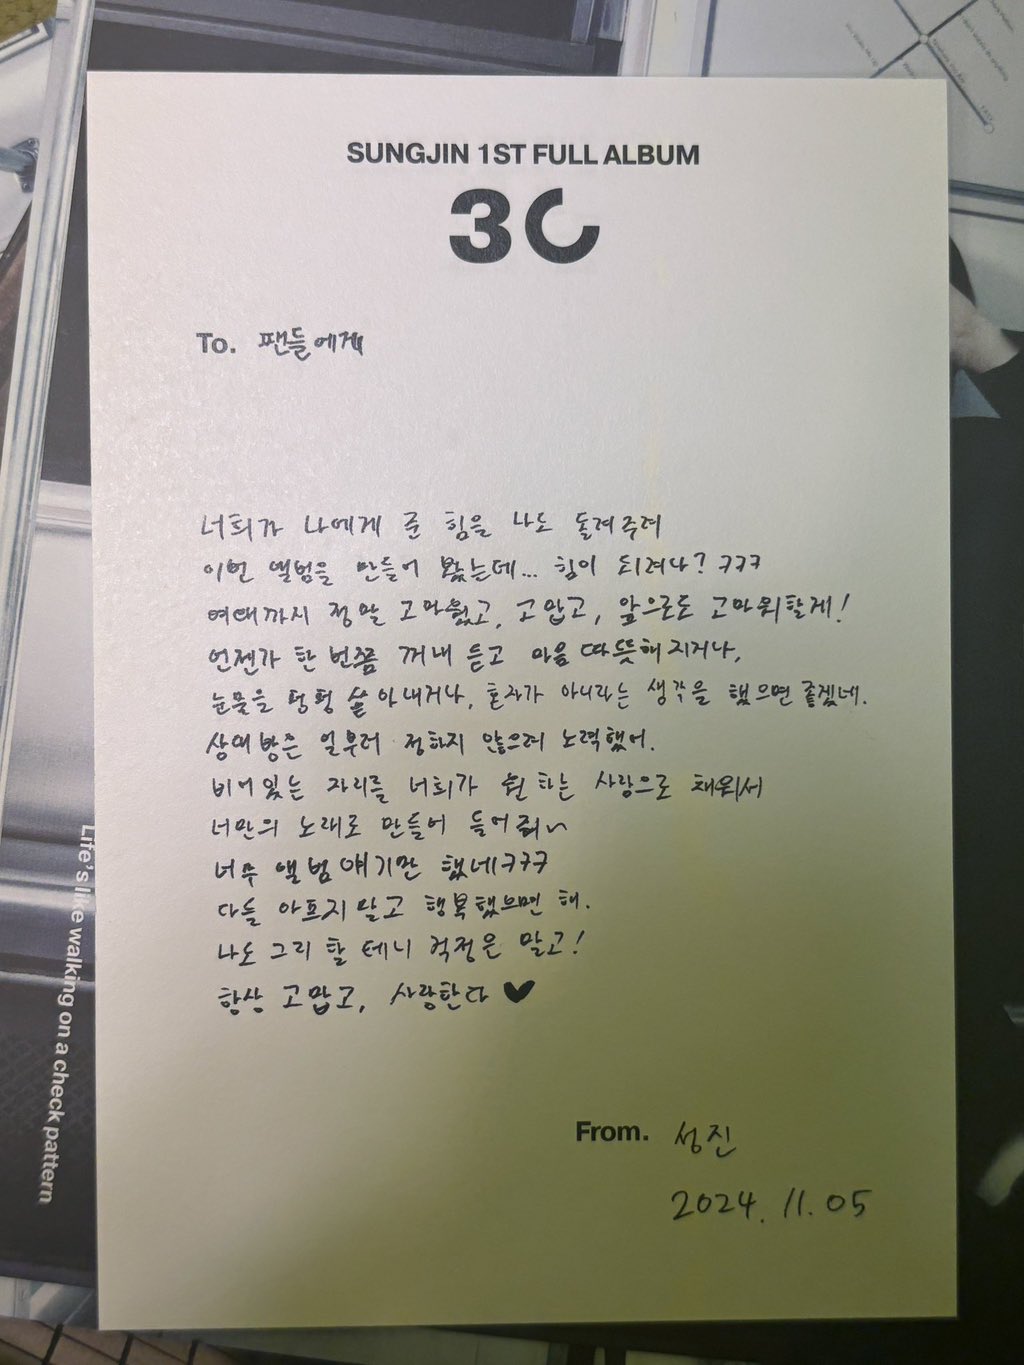 SUNGJIN 1ST FULL ALBUM
30
To. 팬들에게
너희가 나에게 준 힘을 나도 돌려주려
이번 앨범을 만들어 봤는데... 힘이 되려나? ㅋㅋㅋ
여태까지 정말 고마웠고, 고맙고, 앞으로도 고마워할게!
언젠가 한 번쯤 꺼내 듣고 마음 따뜻해지거나,
눈물을 펑펑 쏟아내거나, 혼자가 아니라는 생각을 했으면 좋겠네.
상대방은 일부러 정하지 않으려 노력했어.
비어있는 자리를 너희가 원하는 사랑으로 채워서
너만의 노래로 만들어 들어줘~
너무 앨범 얘기만 했네ㅋㅋㅋ
다들 아프지 말고 행복했으면 해.
나도 그리 할 테니 걱정은 말고!
항상 고맙고, 사랑한다 ♥
From. 성진
2024. 11. 05
Life's like walking on a check pattern